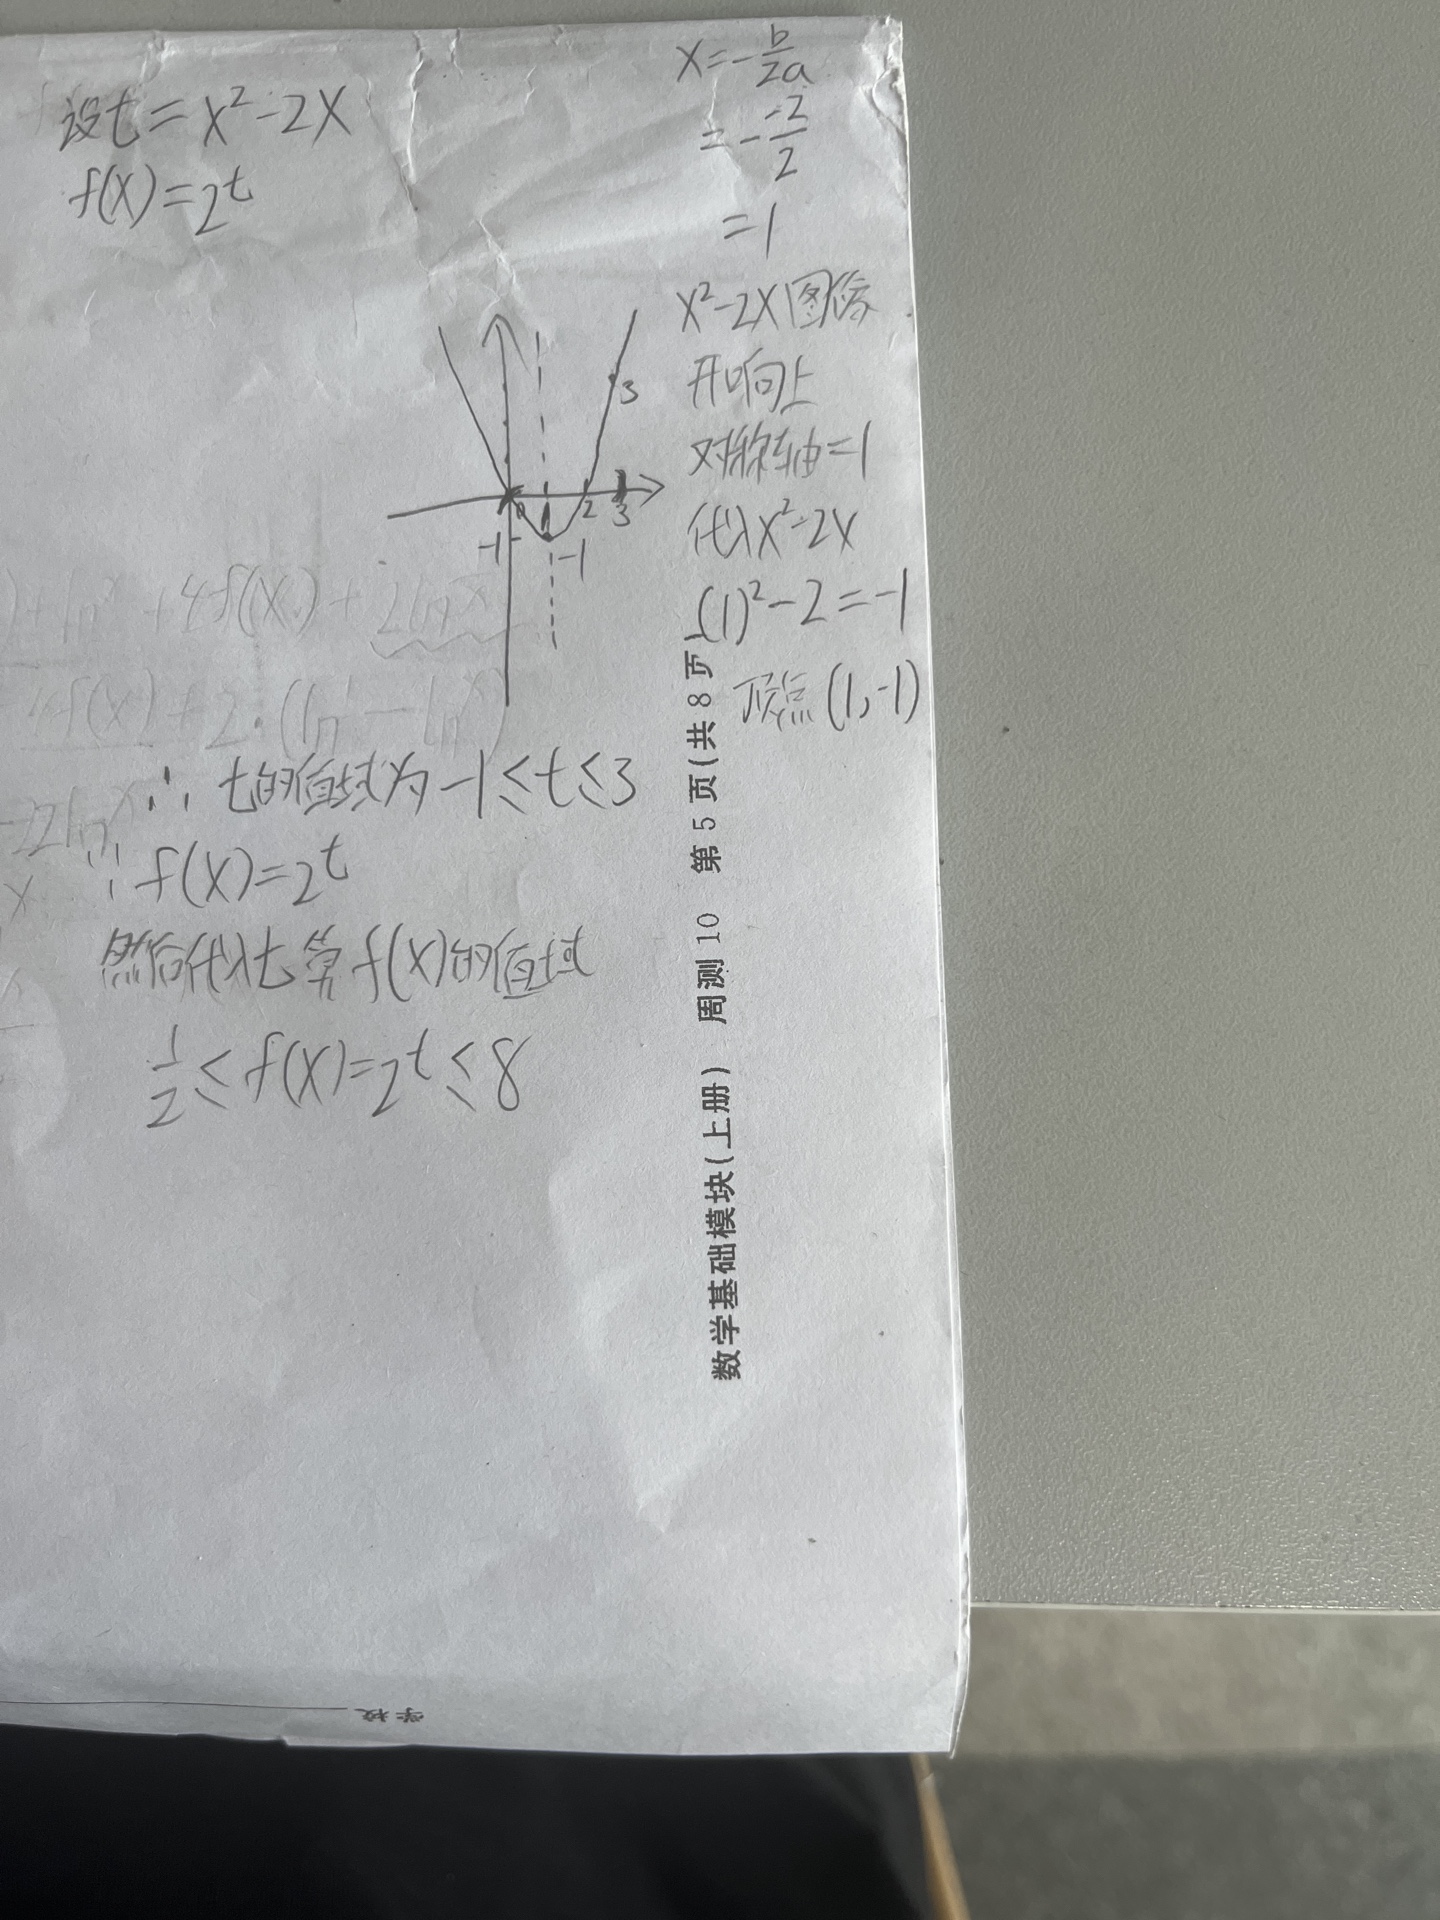 设t=x²-2x
f(x)=2^t
x=-b/2a
=--2/2
=1
x²-2x图像
开口向上
对称轴=1
代入x²-2x
(1)²-2=-1
顶点(1,-1)
3
0 1 2 3
-1 -1
∴ t的值域为-1≤t≤3
∵f(x)=2^t
然后代入t算f(x)的值域
1/2≤f(x)=2^t≤8
数学基础模块(上册) 周测10 第5页(共8页)
学校